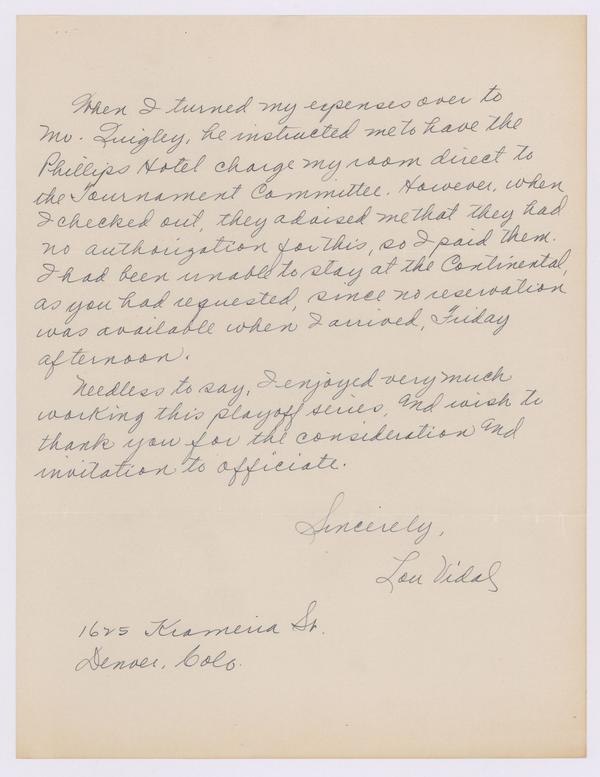 When I turned my expenses over to
Mr. Quigley, he instructed me to have the
Phillips Hotel charge my room direct to
the Tournament Committee. However, when
I checked out, they advised me that they had
no authorization for this, so I paid them.
I had been unable to stay at the Continental,
as you had requested, since no reservation
was available when I arrived, Friday
afternoon.
Needless to say, I enjoyed very much
working this playoff series, and wish to
thank you for the consideration and
invitation to officiate.
Sincerely,
Lou Vidal
1625 Krameria St.
Denver, Colo.